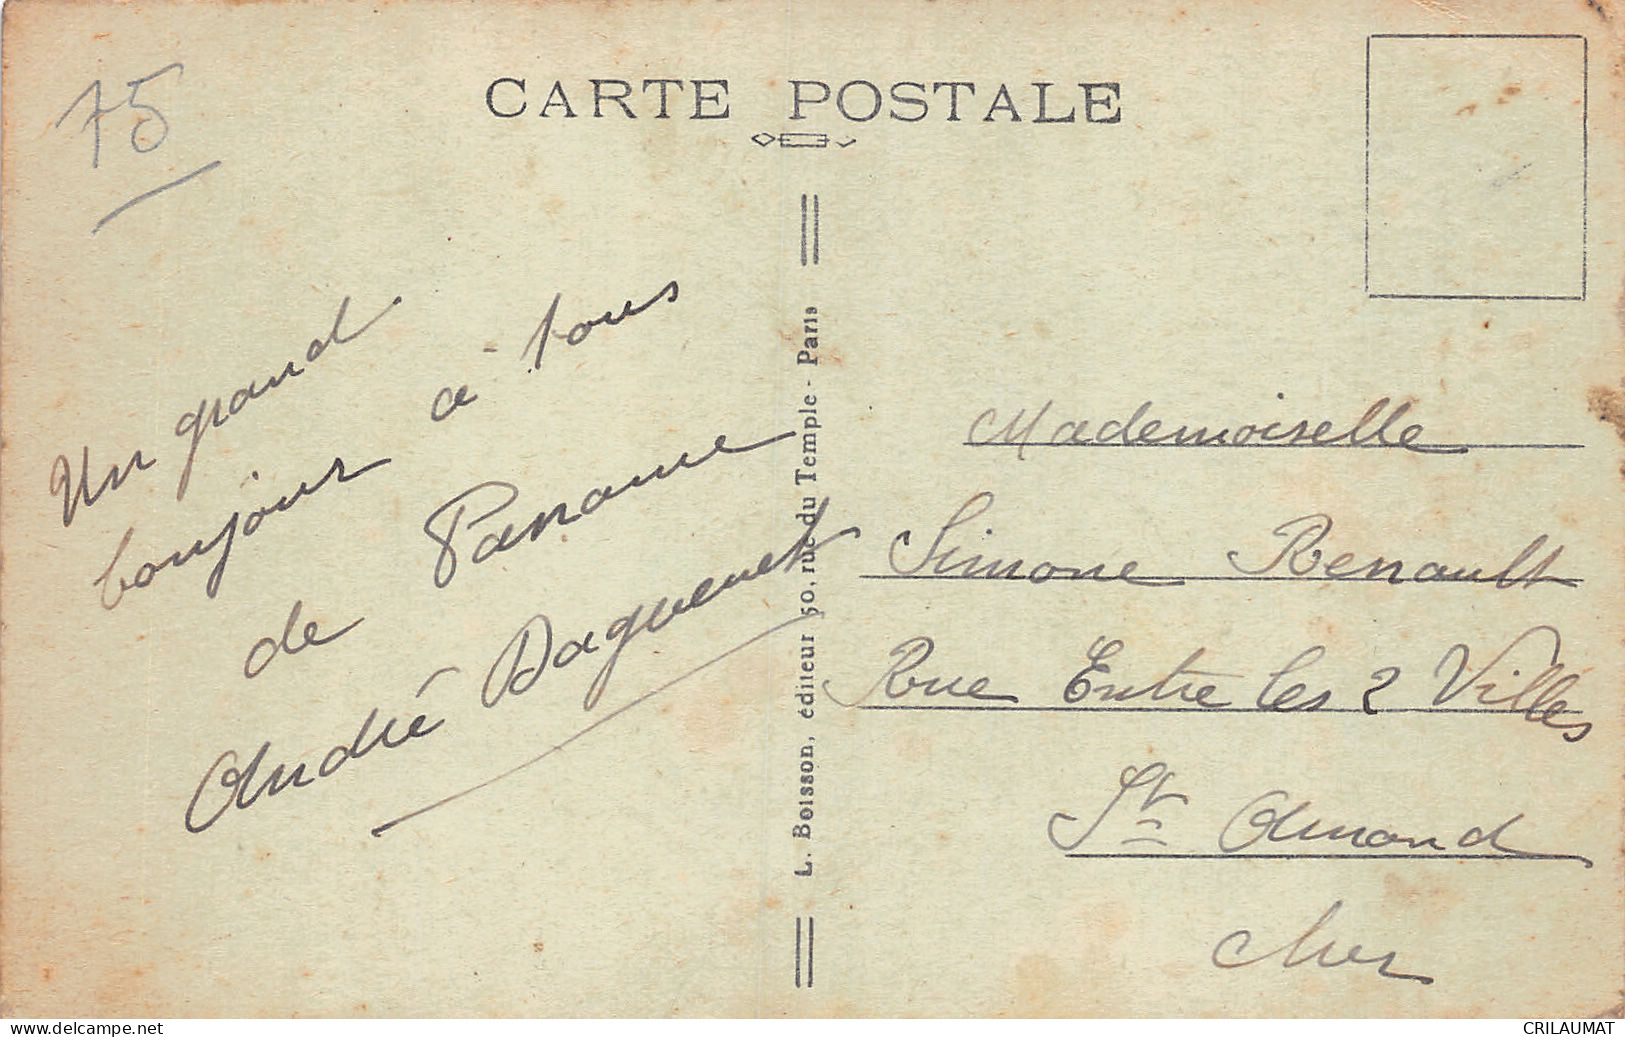 75
CARTE POSTALE
Un grand
bonjour à tous
de Paname
André Daguenet
L. Boisson, éditeur 50, rue du Temple - Paris
Mademoiselle
Simone Renault
Rue Entre les 2 Villes
St Amand
Cher
www.delcampe.net
CRILAUMAT